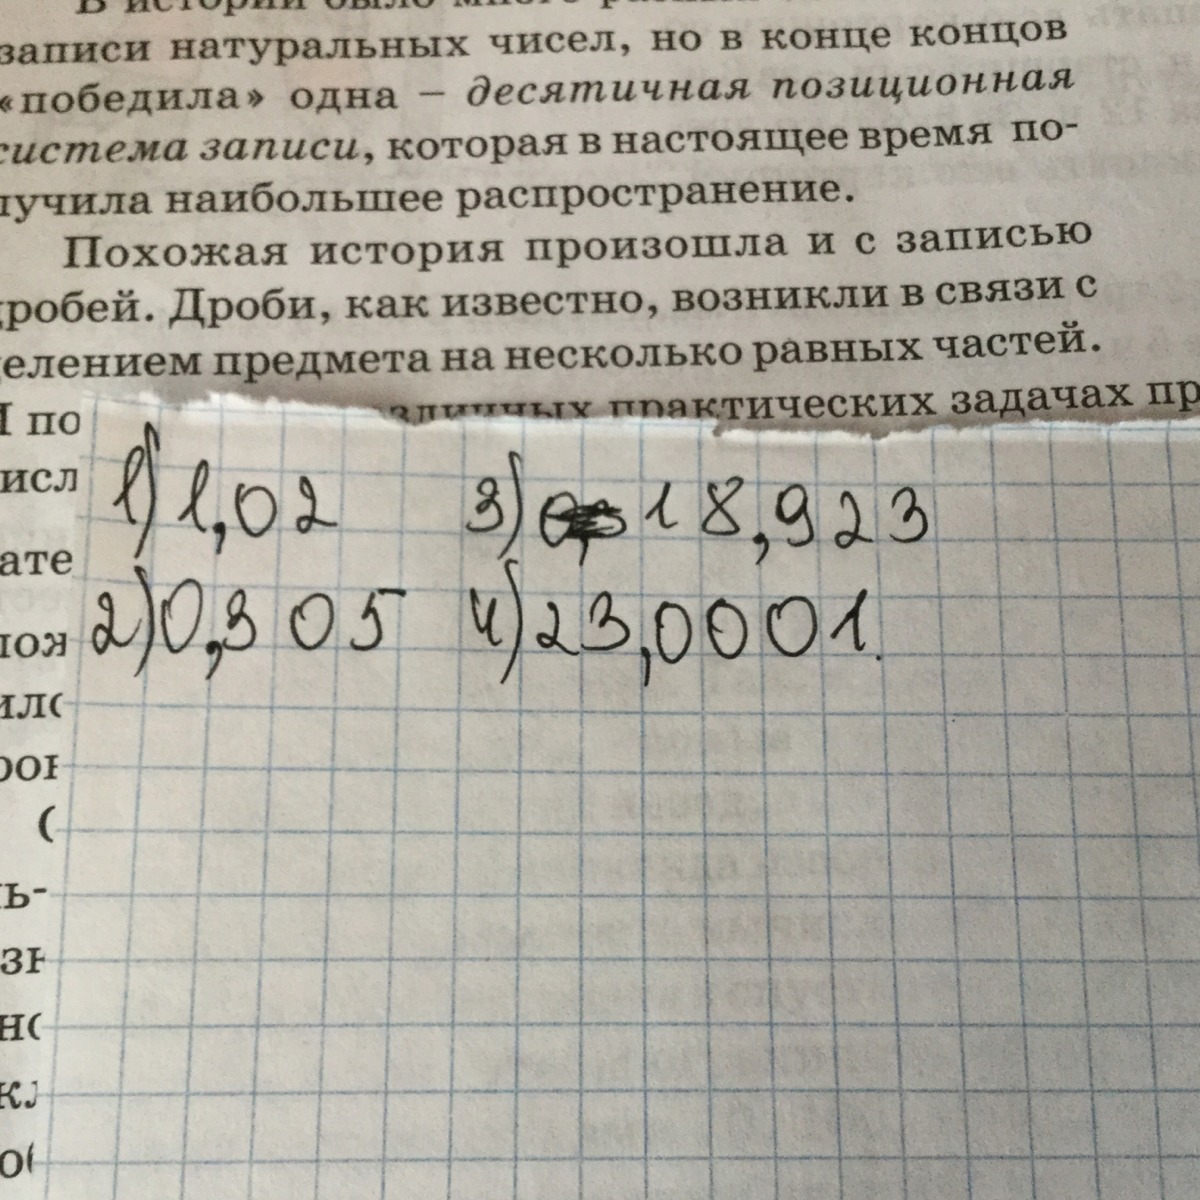 В истории было много
записи натуральных чисел, но в конце концов
«победила» одна – десятичная позиционная
система записи, которая в настоящее время по-
лучила наибольшее распространение.
Похожая история произошла и с записью
дробей. Дроби, как известно, возникли в связи с
делением предмета на несколько равных частей.
И по различных практических задачах пр
исл
1) 1,02 3) 18,923
ате
2) 0,305 4) 23,0001.
лож
илс
рон
(
ль-
зн
но
кл
об